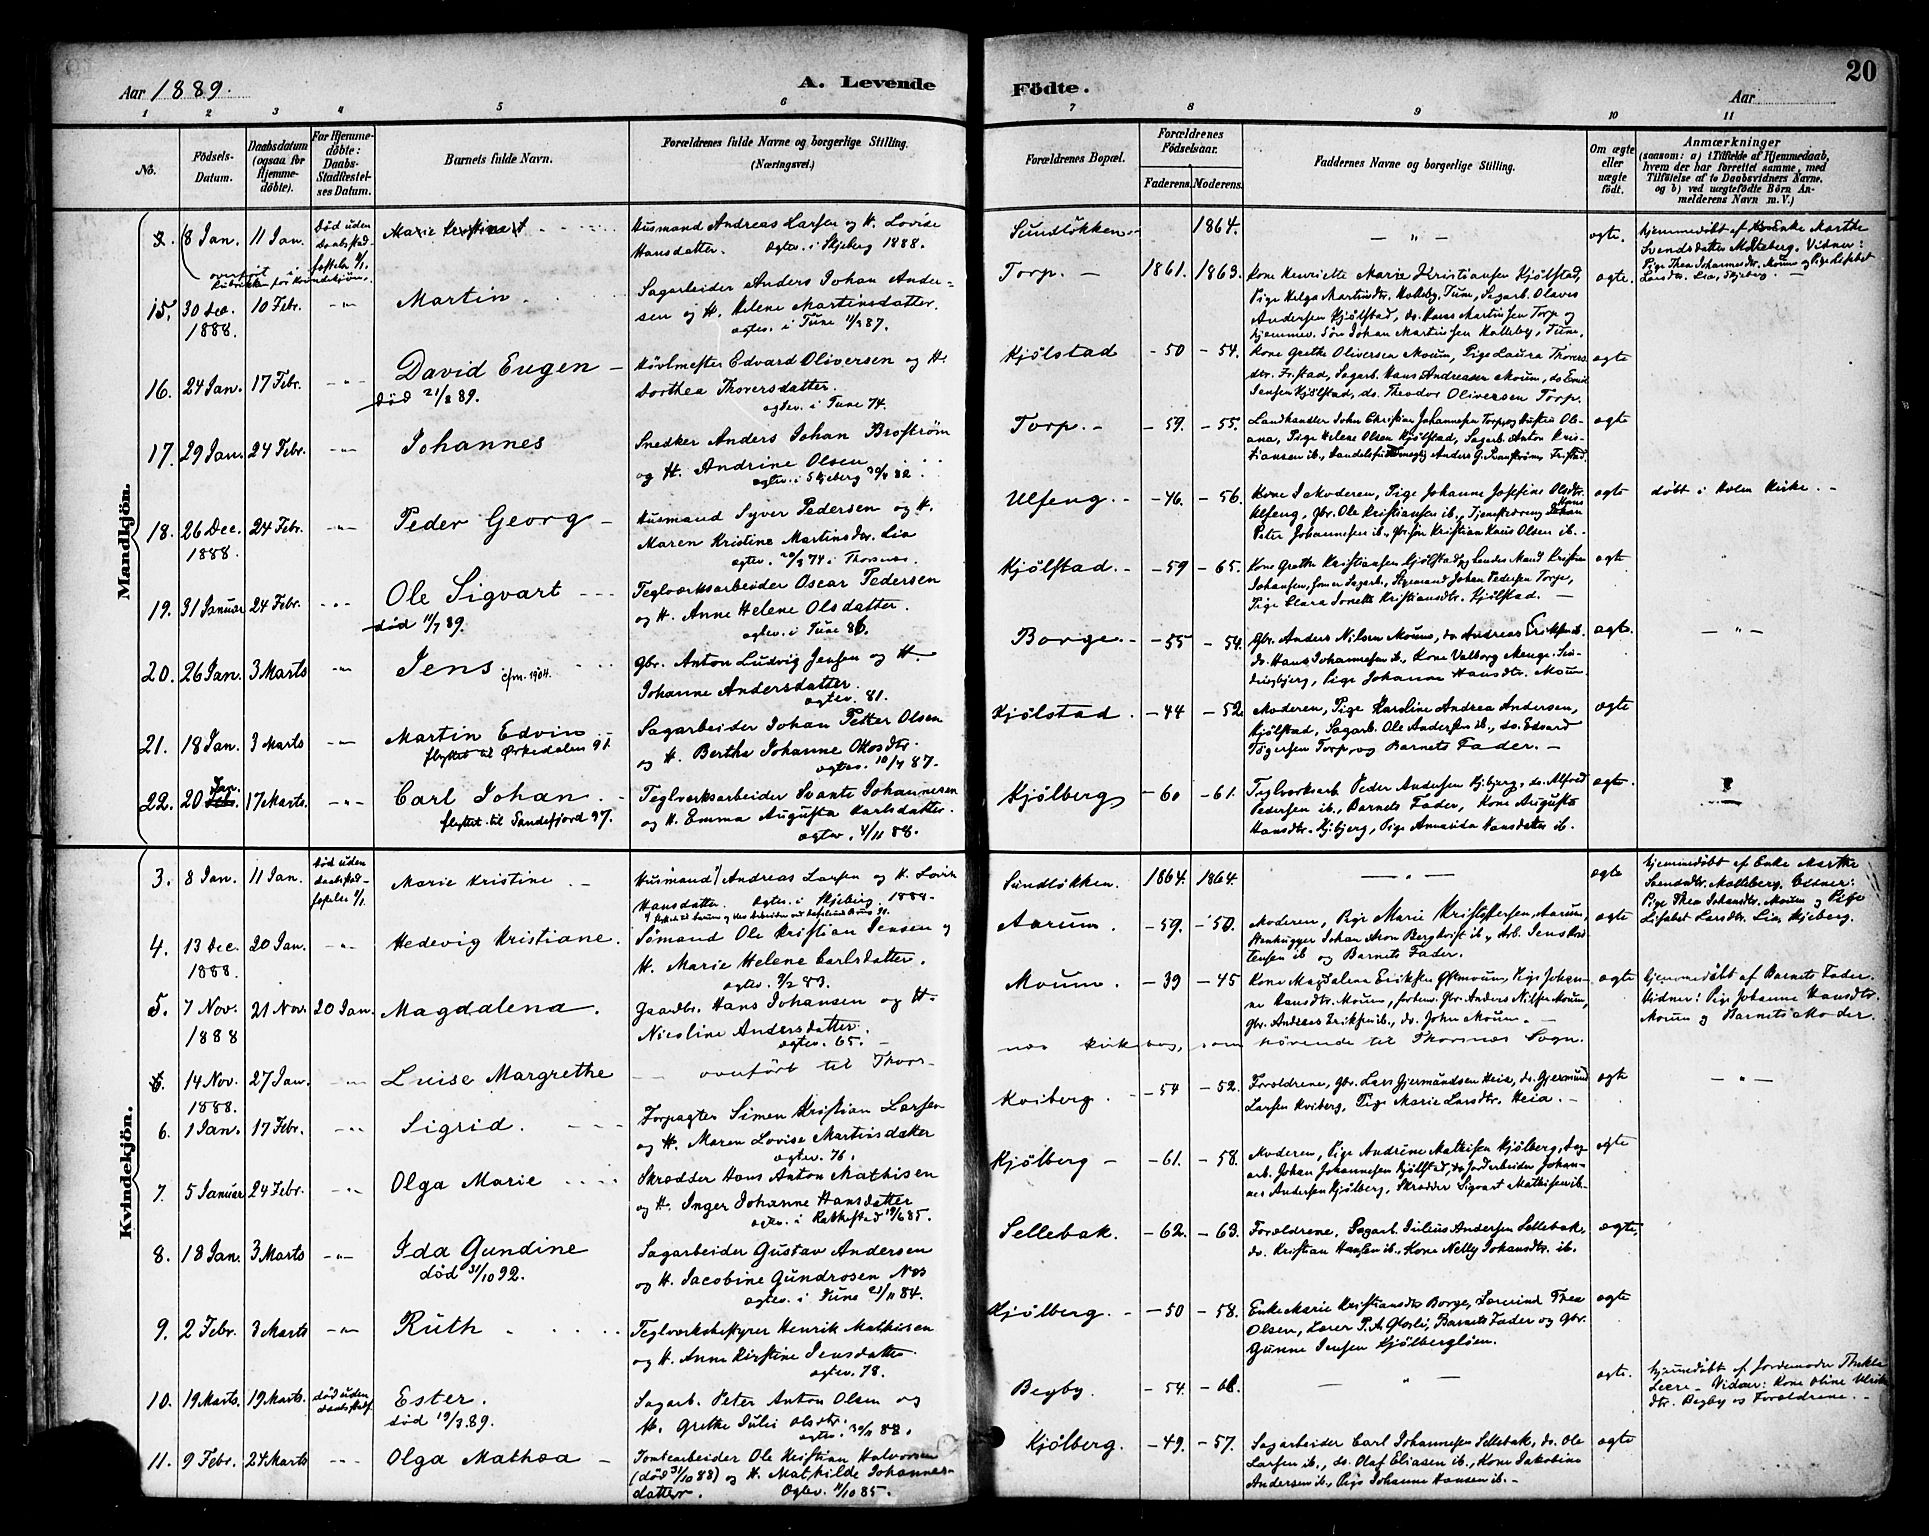 20
Aar 1889.
A. Levende
Födte.
Aar
1 2 3 4 5 6 7 8 9 10 11
No.
Födsels-Datum.
Daabsdatum (ogsaa for Hjemme-döbte).
For Hjemme-döbte: Daabs-Stadfæstel-ses Datum.
Barnets fulde Navn.
Forældrenes fulde Navne og borgerlige Stilling.
(Næringsvei.)
Forældrenes Bopæl.
Forældrenes Födselsaar.
Faderens. Moderens.
Faddernes Navne og borgerlige Stilling.
Om ægte eller uægte födt.
Anmærkninger
(saasom: a) i Tilfælde af Hjemmedaab, hvem der har forrettet samme, med Tilföielse af to Daabsvidners Navne, og b) ved uægtefödte Börn An-melderens Navn m. V.)
Mandkjön.
8 Jan. 11 Jan. Død uden daabsstad-fæstelse 9/1. Marie Kristine Husmand Andreas Larsen og H. Lovise
Hansdatter. Ægtev. i Skjeberg 1888. Sundløkken 1864. — " — ægte. Hjemmedøbt af Enke Marthe
Svendsdatter Molteberg. Vidner:
Pige Thea Johannesdtr. Moum og Pige Lisabet
Larsdtr. Lia, Skjeberg. —
overført i Rubrikken for Kvindekjøn.
15. 30 Dec. 1888. 10 Febr. Martin Sagarbeider Anders Johan Ander-
sen og H. Helene Martinsdatter.
ægtev. i Tune 87. Torp. — 1861. 1863. Kone Henriette Marie Kristiansen Kjølstad,
Pige Helga Martinsdtr. Halleby, Tune, Sagarb. Olavis
Andersen Kjølstad, do. Hans Martinsen Torp og
hjemmev. Søn Johan Martinsen Halleby, Tune. ægte.
16. 24 Jan. 17 Febr. David Eugen — Høvlmester Edvard Oliversen og H.
død 21/8 89. Dorthea Thoversdatter.
ægtev. i Tune 74. Kjølstad — 50 — 54. Kone Grethe Oliversen Moum, Pige Laura Thovers-
dtr. Fristad, Sagarb. Hans Andreasen Moum, do. Emil
Jensen Kjølstad, do. Theodor Oliversen Torp. ægte
17. 29 Jan. 24 Febr. Johannes Snedker Anders Johan Broström
og H. Andrine Olsen
ægtev. i Skjeberg 82. Torp. — — 59. — 55. Landhandler John Christian Johannesen Torp og Hustru Ol-
ana, Pige Helene Olsen Kjølstad, Sagarb. Anton Kris-
tiansen ib., Anders G. Fristad. ægte
18. 26 Dec. 1888. 24 Febr. Peder Georg — Husmand Syver Pedersen og H.
Maren Kristine Martinsdtr. Lia
ægtev. 20/3 74 i Thorsnæs. Ulfeng. — — 46. — 56. Kone I Moderen, Pige Johanne Josefine Olsdtr.
Ulfeng, Gbr. Ole Kristiansen ib., Tjenestedreng Hans
Peter Johannesen ib., Gbr. søn Kristian Hans Olsen ib. ægte døbt i Holm Kirke. —
19. 31 Januar 24 Febr. Ole Sigvart Teglværksarbeider Oscar Pedersen
død 11/7 89. og H. Anne Helene Olsdatter.
ægtev. i Tune 86. Kjølstad. — — 59 — 65. Kone Grethe Kristiansen Kjølstad,
Johansen, Sagarb., Johan Pedersen Torp,
Pige Clara Kristiansdtr. Kjølstad. — ægte
20. 26 Jan. 3 Marts Jens cfm. 1904. Gbr. Anton Ludvig Jensen og H.
Johanne Andersdatter.
ægtev. 81. Borge. — — 55 — 54. Gbr. Anders Nilsen Moum, do. Andreas Eriksen ib.
do. Hans Johannesen ib., Kone Valborg
Pige Johanne Hansdtr. Moum ægte. — " —
21. 18 Jan. 3 Marts Martin Edvin Sagarbeider Johan Petter Olsen
flyttet til Ørkedalen 91. og H. Berthe Johanne
ægtev. 87. Kjølstad. — 44 — 52. Moderen, Pige Karoline Andrea Andersen,
Kjølstad, Sagarb. Ole Andersen ib., do. Edvard
Torp, og Barnets Fader. — ægte
22. 20 Jan. 17 Marts. Carl Johan. Teglværksarbeider Svante Johannesen
flyttet til Sandefjord 97. og H. Emma Augusta Karlsdatter.
ægtev. 4/11 88. Kjølberg — 60 — 61. Teglværksarb. Peder Andersen Kjøbjerg, do. Alfred
Pedersen ib., Barnets Fader, Kone Augusta
Hansdtr. Kjøbjerg, Pige Amanda Hansdatter ib. ægte.
Kvindekjön.
3. 8 Jan. 11 Jan. død uden daabsstad-fæstelse 9/1. Marie Kristine Husmand Andreas Larsen og H. Lovise
Hansdatter. Ægtev. i Skjeberg 1888. Sundløkken. 1864. 1864. — " — ægte Hjemmedøbt af Enke Marthe
Svendsdtr. Molteberg. Vidner:
Pige Thea Johansdtr. Moum og Pige
Lisabet Larsdtr. Lia, Skjeberg.
4. 13 Dec. 1888. 20 Jan. Hedevig Kristiane. Sømand Ole Kristian Jensen og
H. Marie Helene Carlsdatter.
ægtev. 9/2 83. Aarum. — 59. — 50. Moderen, Pige Marie Kristoffersen, Aarum,
Stenhugger Johan Aron Bergkvist ib., Arb. Jens
og Barnets Fader. ægte
5. 7 Nov. 1888 21 Nov. 20 Jan. Magdalena. Gaardbr. Hans Johansen og H.
Nicoline Andersdatter.
ægtev. 65. — Moum. — 39 — 45 Kone Magdalene Eriksen Østmoum, Pige Johan-
ne Hansdtr. Moum, forhenv. Gbr. Anders Nilsen Moum,
Gbr. Andreas Eriksen ib., do. John Moum. — ægte Hjemmedøbt af Barnets Fader.
Vidner: Pige Johanne Hansdtr.
Moum og Barnets Moder.
6. 14 Nov. 1888. 27 Jan. Luise Margrethe — overført til Thors-
næs kirkebog, som hørende til Thorsnæs Sogn.
6. 1 Jan. 17 Febr. Sigrid. Forpagter Simen Kristian Larsen
og H. Maren Lovise Martinsdatter
ægtev. 76. Kviberg. — 54 — 52. Forældrene, Gbr. Lars Gjermundsen Heia, do. Gjermund
Larsen Kviberg, Pige Marie Larsdtr. Heia. — ægte — " —
7. 5 Januar 24 Febr. Olga Marie Skrædder Hans Anton Mathisen
og H. Inger Johanne Hansdatter
ægtev. i Rakkestad 85. Kjølberg — — 61. — 58. Moderen, Pige Andrine Mathisen Kjølberg, Sag-
arb. Johan Johannesen Kjølstad, do. Johan-
nes Andersen Kjølberg, Skrædder Sigvart Mathisen ib. ægte
8. 18 Jan. 3 Marts Ida Gundine Sagarbeider Gustav Andersen
død 31/10 92. og H. Jacobine Gundrosen Næs
ægtev. i Tune 21/11 84. Sellebak. — 62. — 63. Forældrene, Sagarb. Julius Andersen Sellebak,
do. Kristian Hansen ib., Kone Nelly Johansdtr. ib. ægte,
9. 2 Febr. 3 Marts Ruth Teglværksbestyrer Henrik Mathisen
og H. Anne Kirstine Jensdatter
ægtev. 78. Kjølberg. — — 50 — 58. Enke Marie Kristiansdtr. Borge, Lærerinde Thea
Olsen, Lærer P. A. Barnets Fader og Gbr.
Gunne Jensen Kjølberg ægte
10. 19 Marts. 19 Marts. død uden daabsstadf. Ester. Sagarb. Peter Anton Olsen og
død 19/3 89. H. Grethe Julie Olsdtr.
ægtev. 30/11 88. Begby. — 54. — 68. — " — ægte. Hjemmedøbt af Jordemoder Thekla
Leere. Vidner: Kone Oline Ulriks-
dtr. Begby og Forældrene. —
11. 9 Febr. 24 Marts Olga Mathea — Tomtearbeider Ole Kristian Halvorsen
(død 3/10 88) og H. Mathilde Johannes-
datter. Ægtev. 11/10 85. Kjølberg. — 49. — 57. Sagarbeider Carl Johannesen Sellebak, do. Ole
Larsen ib., do. Olaf Eliasen ib., Kone Jakobine
Andersen ib., Pige Johanne Hansen ib. — ægte